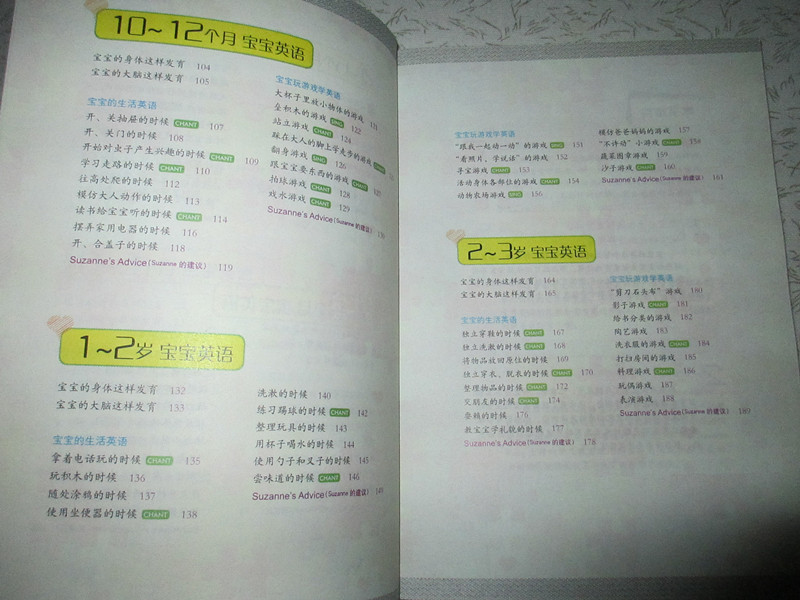 10~12个月 宝宝英语
宝宝的身体这样发育 104
宝宝的大脑这样发育 105
宝宝的生活英语
开、关抽屉的时候 CHANT 107
开、关门的时候 108
开始对虫子产生兴趣的时候 CHANT 109
学习走路的时候 CHANT 110
往高处爬的时候 112
模仿大人动作的时候 113
读书给宝宝听的时候 CHANT 114
摆弄家用电器的时候 116
开、合盖子的时候 118
Suzanne's Advice(Suzanne 的建议) 119
宝宝玩游戏学英语
大杯子里放小物体的游戏 121
垒积木的游戏 SING 122
站立游戏 CHANT 124
踩在大人的脚上学走步的游戏 CHANT
翻身游戏 SING 126
跟宝宝要东西的游戏 CHANT 127
拍球游戏 CHANT 128
戏水游戏 CHANT 129
Suzanne's Advice(Suzanne 的建议) 130
1~2岁 宝宝英语
宝宝的身体这样发育 132
宝宝的大脑这样发育 133
宝宝的生活英语
拿着电话玩的时候 CHANT 135
玩积木的时候 136
随处涂鸦的时候 137
使用坐便器的时候 CHANT 138
洗漱的时候 140
练习踢球的时候 CHANT 142
整理玩具的时候 143
用杯子喝水的时候 144
使用勺子和叉子的时候 145
尝味道的时候 CHANT 146
Suzanne's Advice(Suzanne 的建议) 149
宝宝玩游戏学英语
“跟我一起动一动”的游戏 SING 151
“看照片，学说话”的游戏 152
寻宝游戏 CHANT 153
活动身体各部位的游戏 CHANT 154
动物农场游戏 SING 156
模仿爸爸妈妈的游戏 157
“不许动”小游戏 CHANT 158
蔬菜图章游戏 159
沙子游戏 CHANT 160
Suzanne's Advice(Suzanne 的建议) 161
2~3岁 宝宝英语
宝宝的身体这样发育 164
宝宝的大脑这样发育 165
宝宝的生活英语
独立穿鞋的时候 CHANT 167
独立洗漱的时候 CHANT 168
将物品放回原位的时候 169
独立穿衣、脱衣的时候 CHANT 170
整理物品的时候 CHANT 172
交朋友的时候 CHANT 174
耍赖的时候 176
教宝宝学礼貌的时候 177
Suzanne's Advice(Suzanne 的建议) 178
宝宝玩游戏学英语
“剪刀石头布”游戏 180
影子游戏 CHANT 181
给书分类的游戏 182
陶艺游戏 183
洗衣服的游戏 CHANT 184
打扫房间的游戏 185
料理游戏 CHANT 186
玩偶游戏 187
表演游戏 188
Suzanne's Advice(Suzanne 的建议) 189